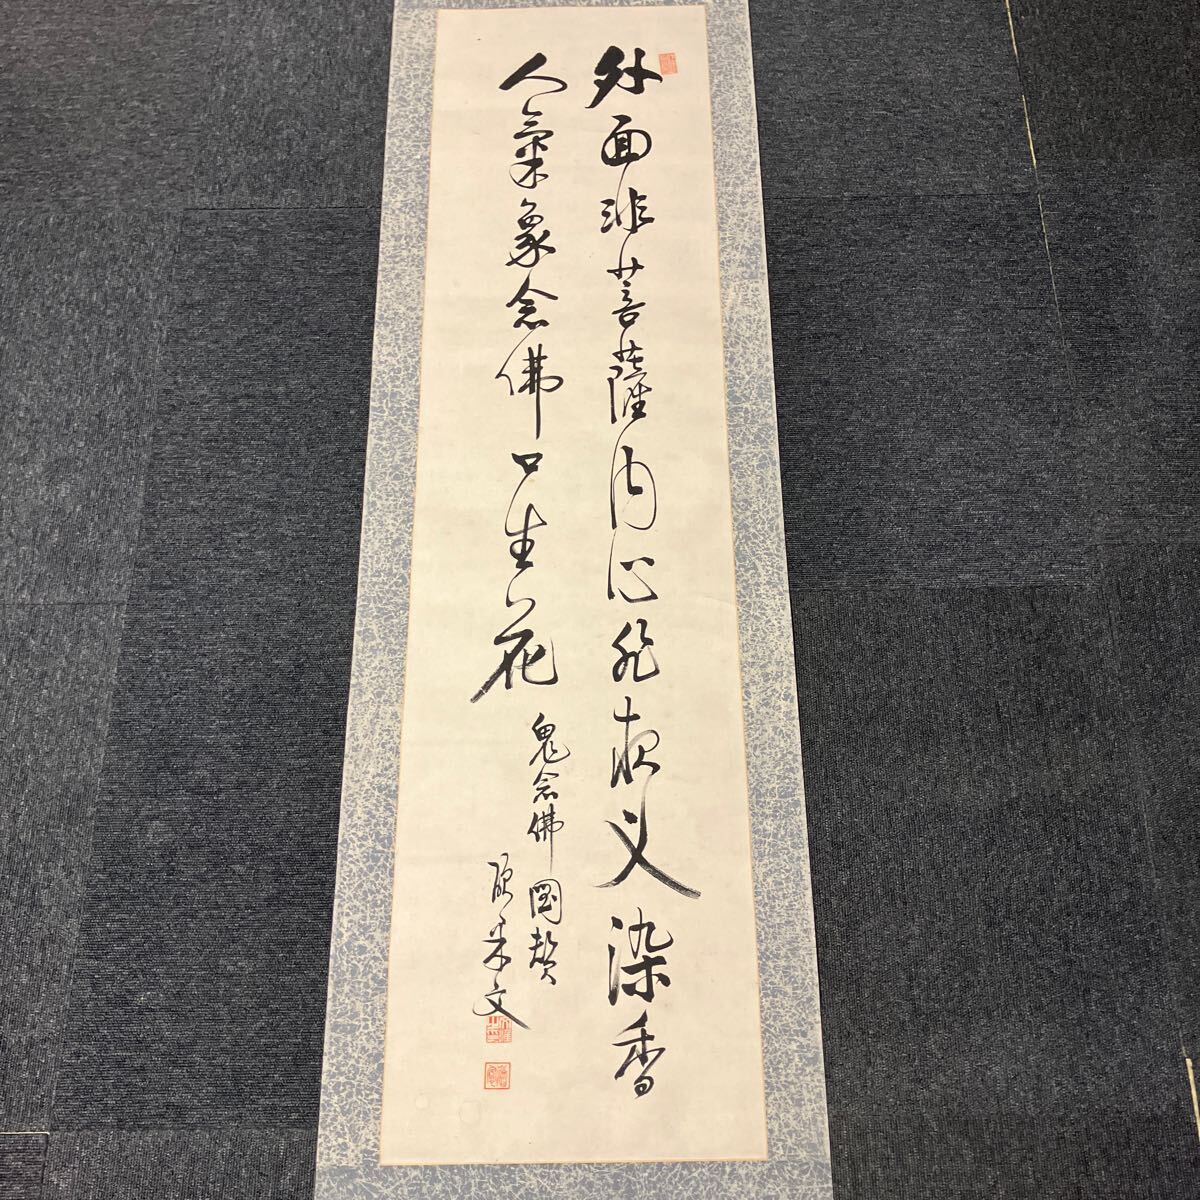 外面非菩薩内心非夜叉染香
人氣象念佛口生花
鬼念佛圖贊
文